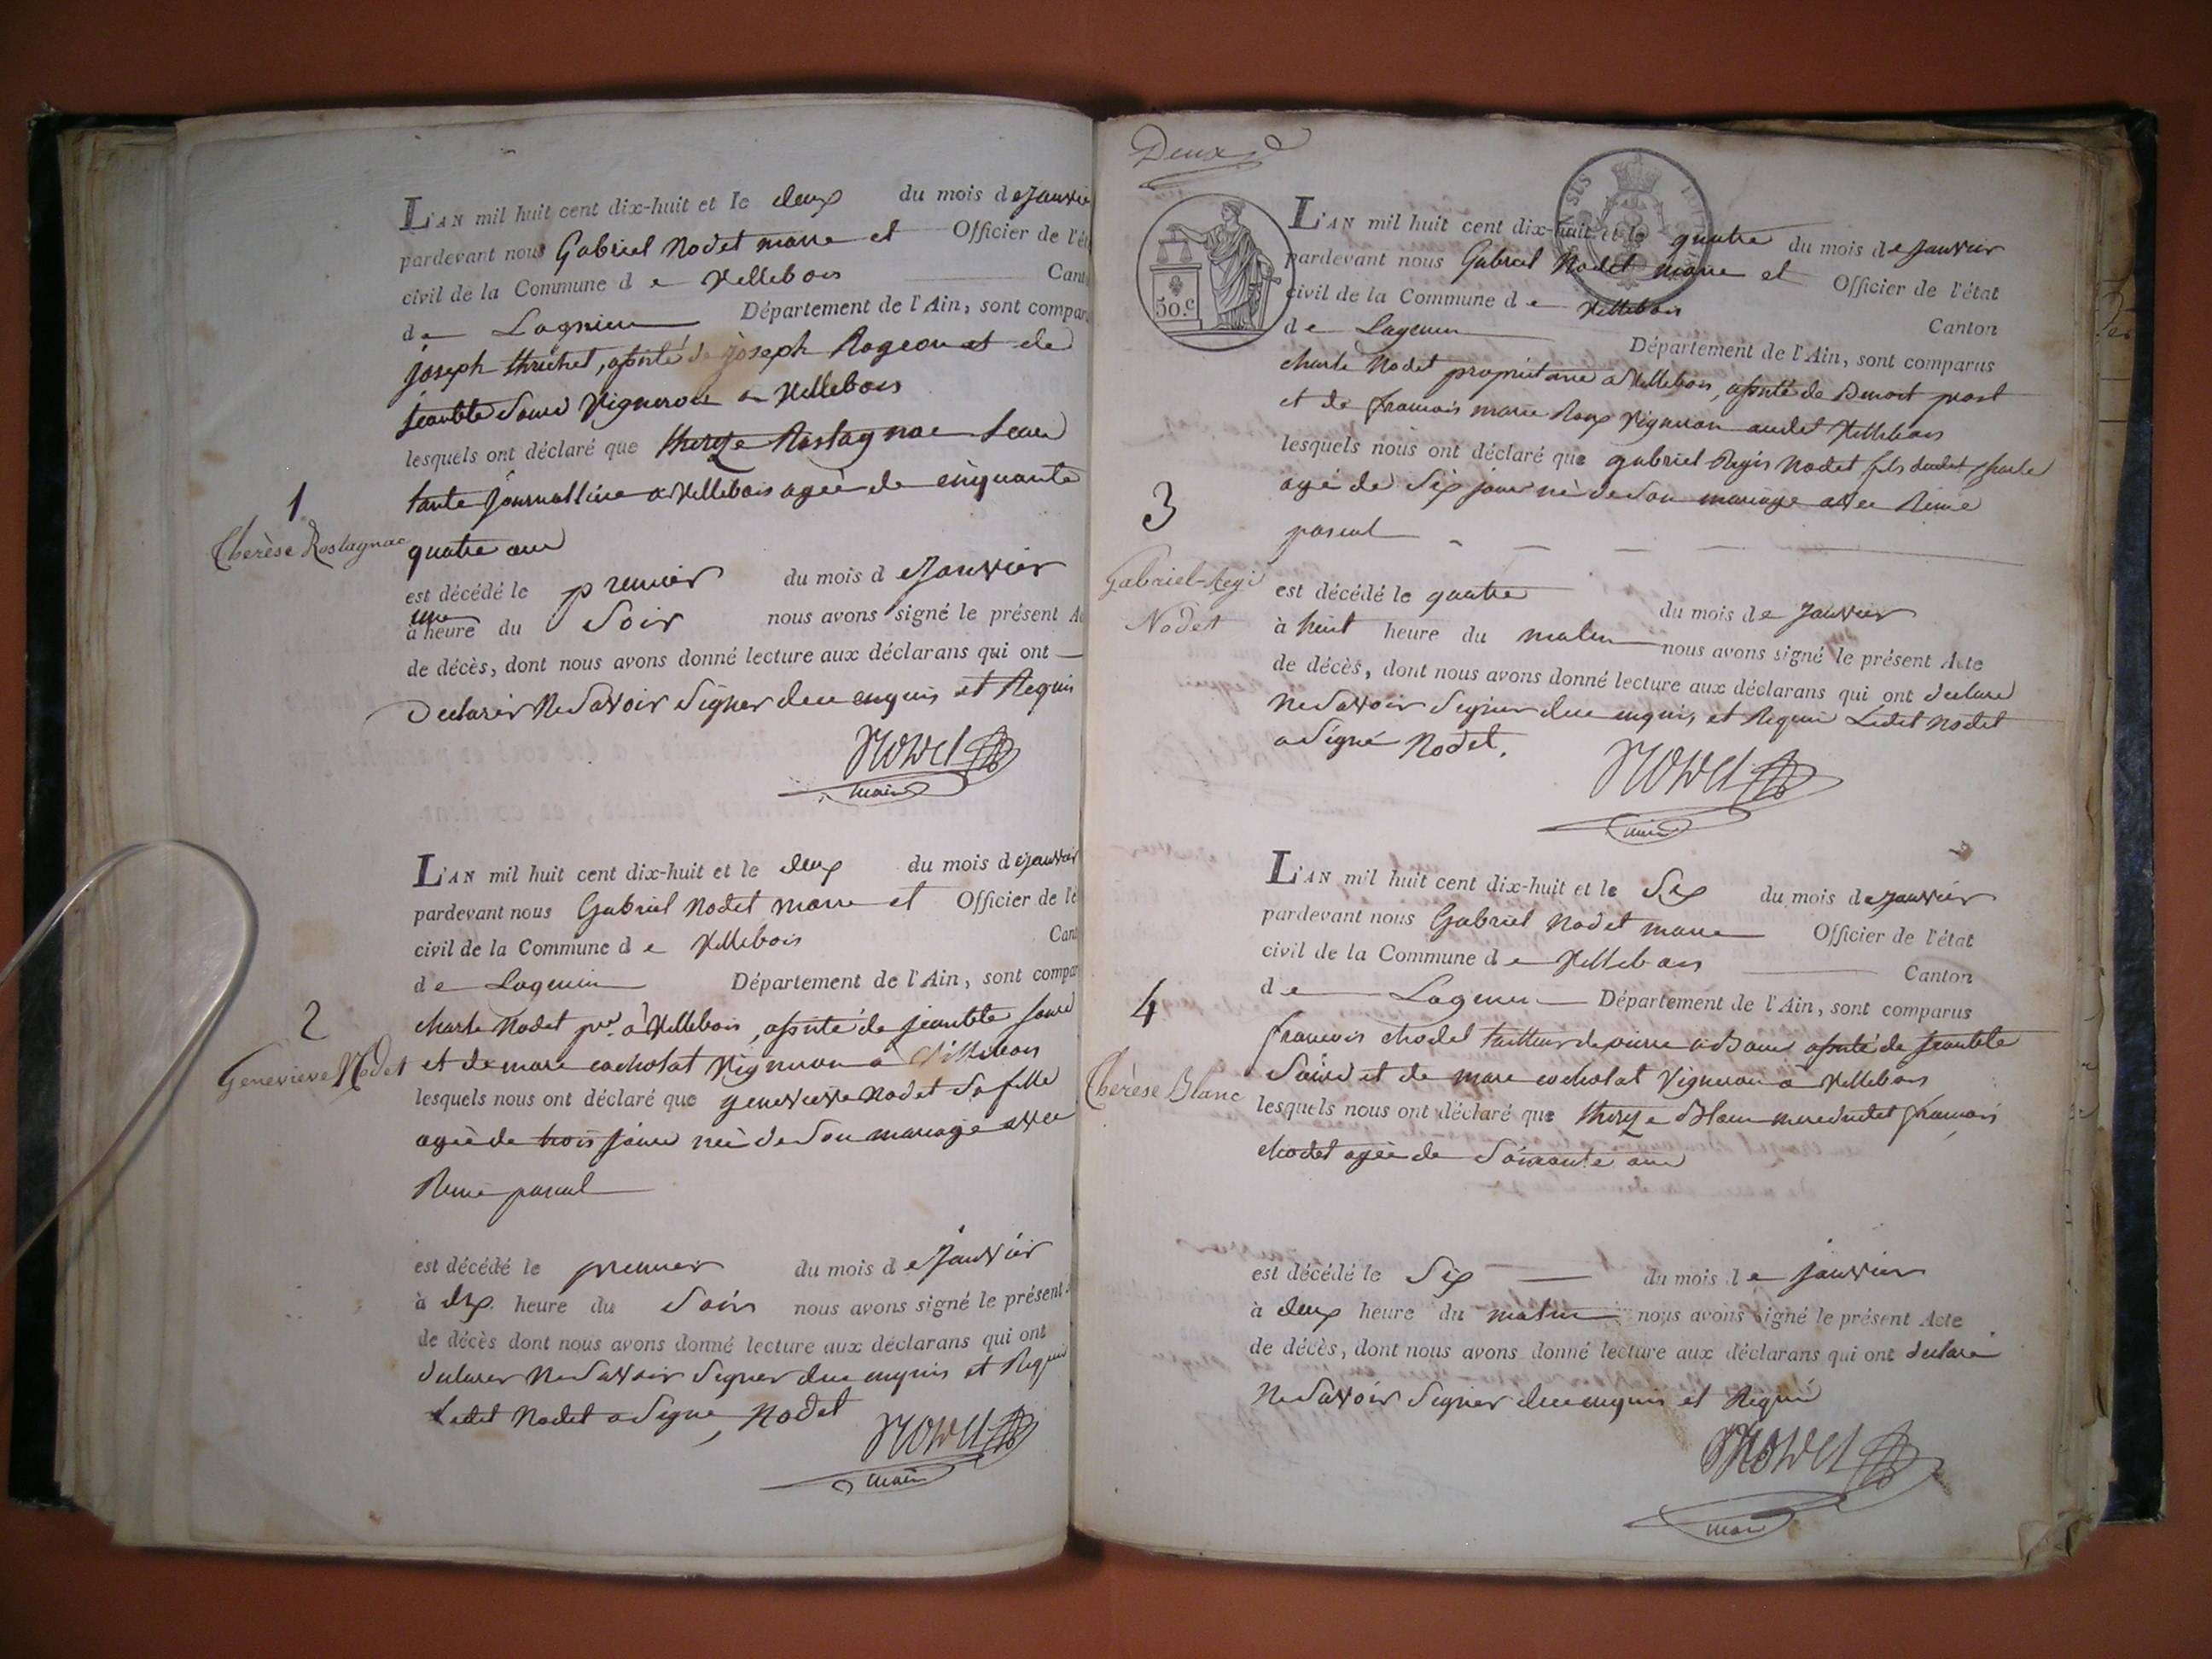 L'AN mil huit cent dix-huit et le deux du mois de Janvier
pardevant nous Gabriel Nodet maire et Officier de l'ét
civil de la Commune de Villebois Cant
de Lagnieu Département de l'Ain, sont compar
joseph, assisté de joseph Rogeon et de
Vigneron a Villebois
lesquels ont déclaré que Rostagnac
tante journallière a Villebois agée de cinquante
1
Therèse Rostagnac
quatre ans
est décédé le premier du mois de Janvier
une
à heure du Soir nous avons signé le présent Ac
de décès, dont nous avons donné lecture aux déclarans qui ont
Declarer Ne Savoir Signer de ce enquis et Requis
Nodet
maire
L'AN mil huit cent dix-huit et le deux du mois de janvier
pardevant nous Gabriel Nodet maire et Officier de l'é
civil de la Commune de Villebois Cant
de Lagnieu Département de l'Ain, sont compar
charle Nodet pre. à Villebois, assisté de
2
Genevieve Nodet
et de marc cochotat Vigneron a Villebois
lesquels nous ont déclaré que genevieve Nodet Sa fille
agée de trois jours née de Son mariage avec
pascal
est décédé le premier du mois de Janvier
à dix heure du Soir nous avons signé le présent
de décès dont nous avons donné lecture aux déclarans qui ont
declarer Ne Savoir Signer de ce enquis et Requis
Ledit Nodet a Signé, Nodet
Nodet
maire
Deux
50.c
L'AN mil huit cent dix-huit et le quatre du mois de Janvier
pardevant nous Gabriel Nodet maire et Officier de l'état
civil de la Commune de Villebois
de Lagnieu Canton
Département de l'Ain, sont comparus
charle Nodet propriétaire a Villebois, assisté de Benoit prost
et de francois marie Roux Vigneron audit Villebois
lesquels nous ont déclaré que gabriel Regis Nodet fils dudit charle
agé de Six jours né de Son mariage avec
3
pascal
Gabriel-Regi
Nodet
est décédé le quatre du mois de Janvier
à huit heure du matin nous avons signé le présent Acte
de décès, dont nous avons donné lecture aux déclarans qui ont declaré
Ne Savoir Signer de ce enquis et Requis Ledit Nodet
a Signé Nodet.
Nodet
maire
L'AN mil huit cent dix-huit et le Six du mois de Janvier
pardevant nous Gabriel Nodet maire Officier de l'état
civil de la Commune de Villebois
Canton
de Lagnieu Département de l'Ain, sont comparus
4
francois chodet tailleur de pierre assisté de
et de marc cochotat Vigneron a Villebois
Therèse Blanc
lesquels nous ont déclaré que Blanc mere dudit francois
chodet agée de Soixante ans
est décédé le Six du mois de janvier
à deux heure du matin nous avons signé le présent Acte
de décès, dont nous avons donné lecture aux déclarans qui ont declaré
Ne Savoir Signer de ce enquis et Requis
Nodet
maire